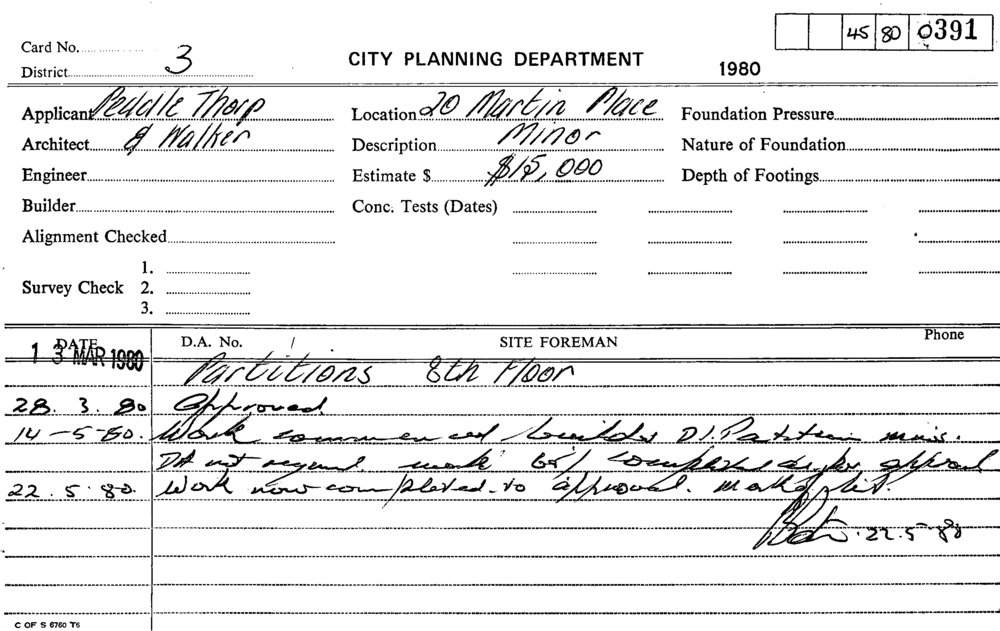 45 80 0391
Card No.
District 3
CITY PLANNING DEPARTMENT
1980
Applicant Peddle Thorp
Architect & Walker
Engineer
Builder
Alignment Checked
Survey Check 1.
2.
3.
Location 20 Martin Place
Description Minor
Estimate $ $15,000
Conc. Tests (Dates)
Foundation Pressure
Nature of Foundation
Depth of Footings
DATE D.A. No. / SITE FOREMAN Phone
13 MAR 1980 Partitions 8th Floor
28. 3. 80 Approved
14-5-80. Work commenced builder
DA not work completed as per
22.5.80. Work now completed to approval.
22.5.80
C OF S 6760 T6